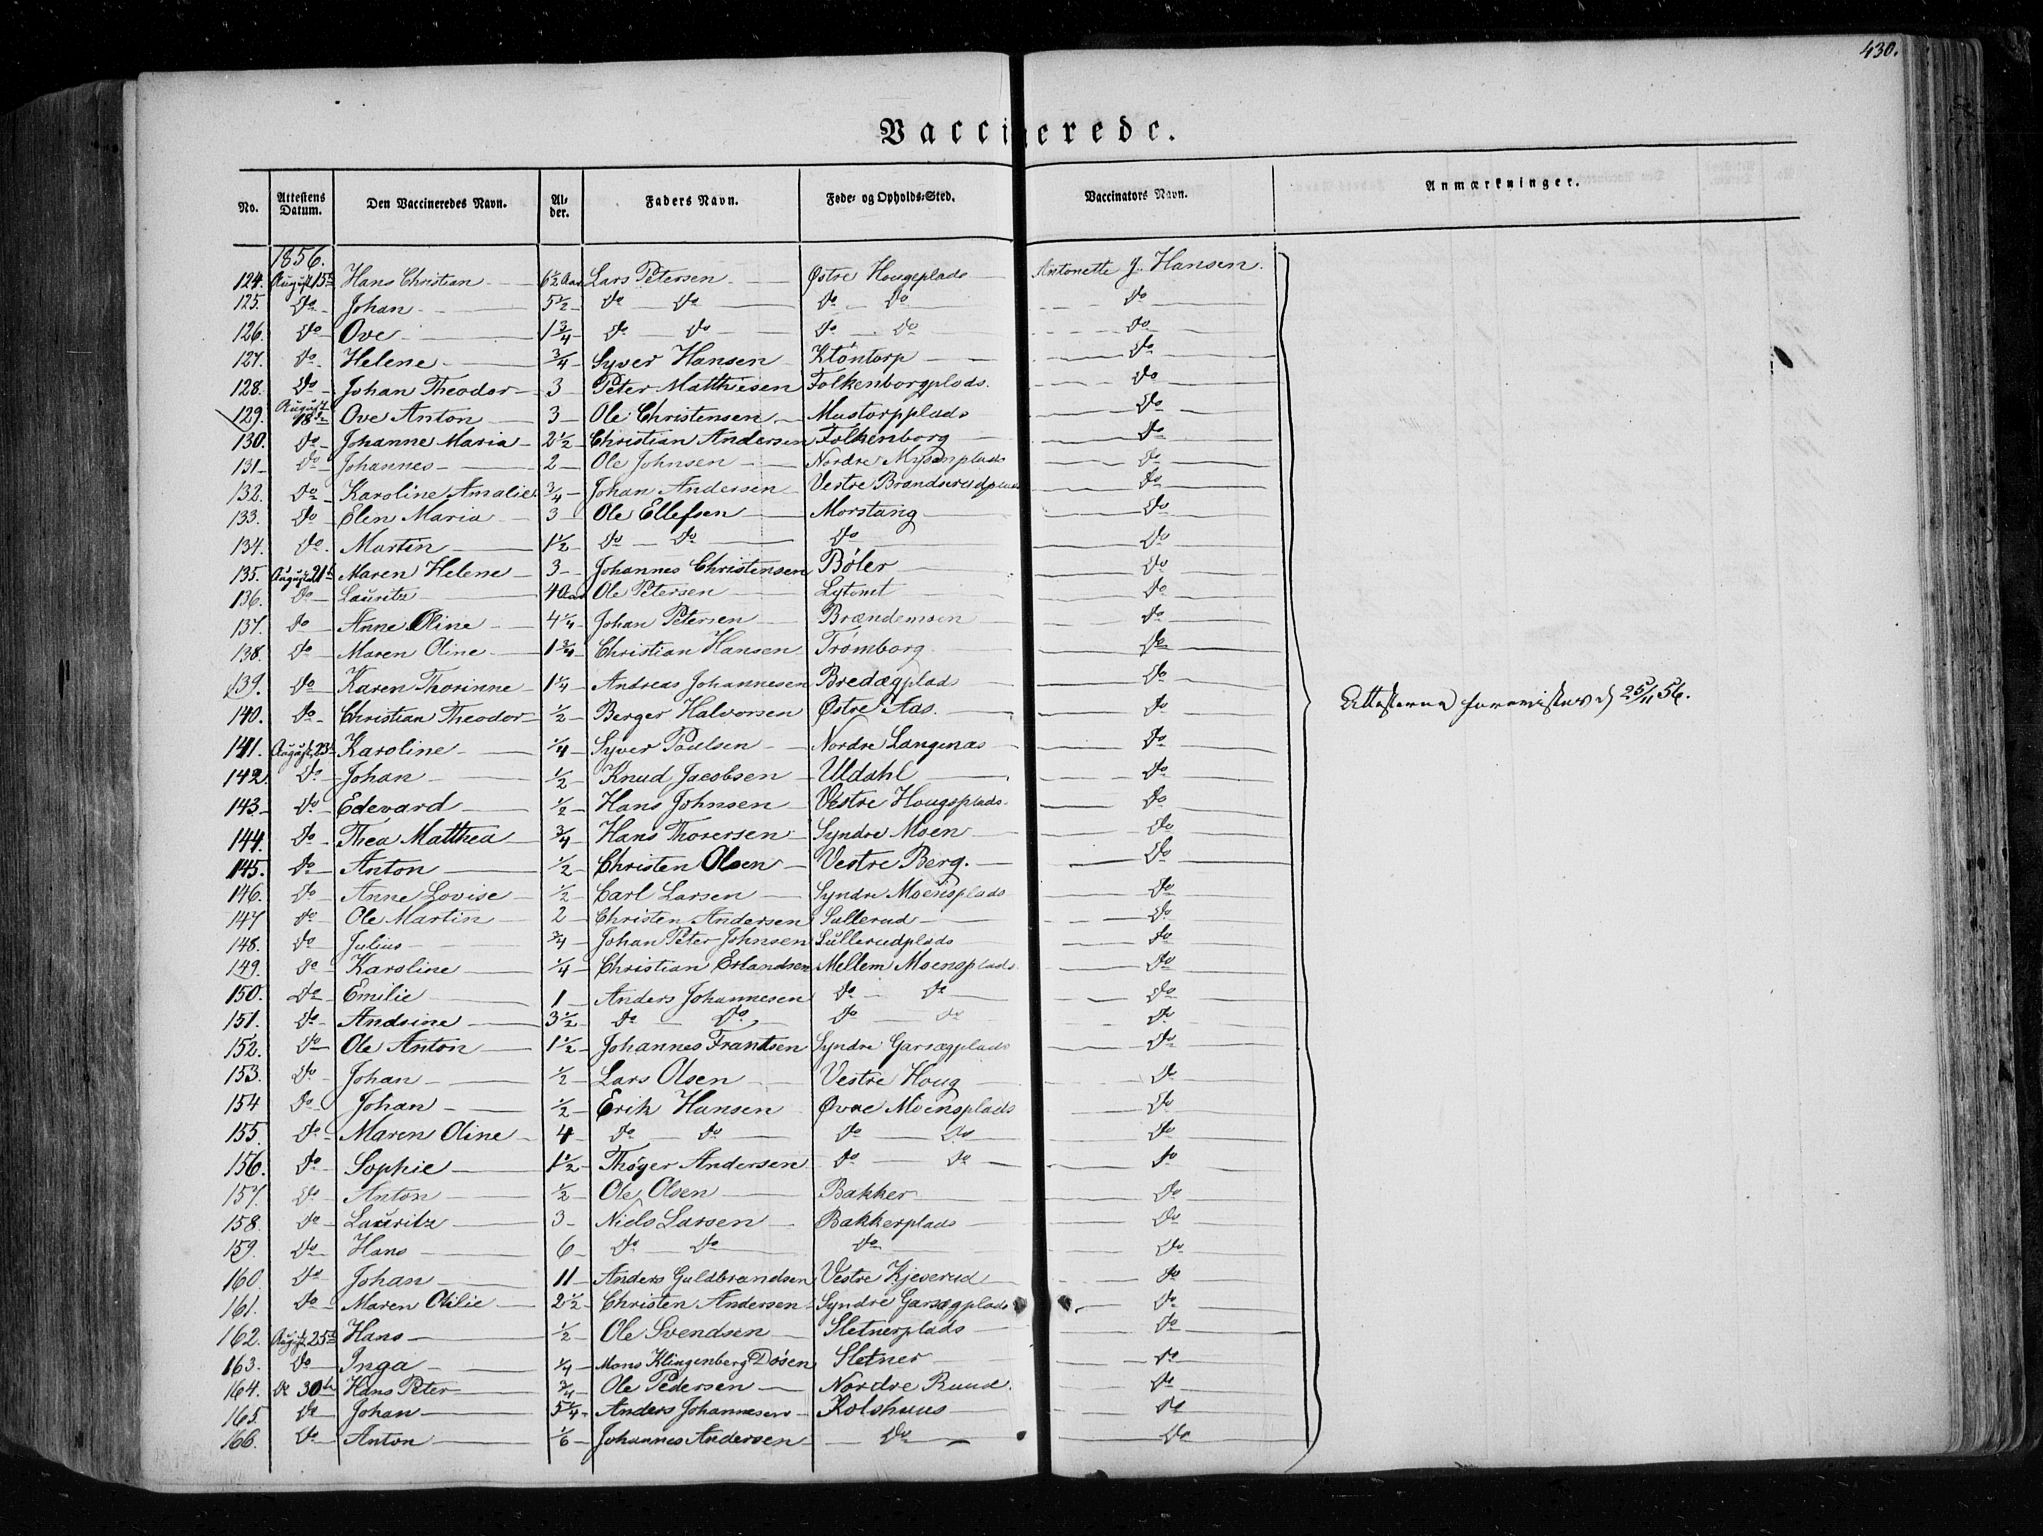 430.
Vaccinerede.
No. Attestens Datum. Den Vaccineredes Navn. Al-der. Faders Navn. Føde- og Opholds-Sted. Vaccinators Navn. Anmærkninger.
1856.
124. August 15de Hans Christian 6½ Aar Lars Petersen Østre Hougsplads Antonette J. Hansen.
125. Do Johan 5½ Do Do Do Do Do
126. Do Ove 1¾ Do Do Do Do Do
127. Do Helene ¾ Syver Hansen Kløntorp Do
128. Do Johan Theodor 3 Peter Matthiesen Folkenborgplads. Do
129. August 18de Ove Anton 3 Ole Christensen Mustorpplads Do
130. Do Johanne Maria 2½ Christian Andersen Folkenborg Do
131 Do Johannes 2 Ole Johnsen Nordre Mysenplads Do
132. Do Karoline Amalie ¾ Johan Andersen Vestre Brandsrudplads Do
133. Do Elen Maria 3 Ole Ellefsen Morstang Do
134. Do Martin 1½ Do Do Do Do
135. August 21de Maren Helene 3 Johannes Christensen Bøler Do
136. Do Lauritz 4 Aar Ole Petersen Lytomt Do
137. Do Anne Oline 4¼ Johan Petersen Brændemoen Do
138. Do Maren Oline 1¾ Christian Hansen Trømborg Do
139. Do Karen Thorinne 1¼ Andreas Johannesen Bredægplad Do
140. Do Christian Theodor ½ Berger Halvorsen Østre Aas. Do Attesterne fremvistes d 25/11 56.
141. August 23de Karoline ¼ Syver Poulsen Nordre Langenæs Do
142. Do Johan ½ Knud Jacobsen Uldahl Do
143. Do Edevard ½ Hans Johnsen Vestre Hougsplads. Do
144. Do Thea Matthea ¾ Hans Thorersen Syndre Moen Do
145. Do Anton ½ Christen Olsen Vestre Berg. Do
146. Do Anne Lovise ½ Carl Larsen Syndre Moensplads Do
147 Do Ole Martin 2 Christen Andersen Sullerud Do
148. Do Julius ¾ Johan Peter Johnsen Sullerudplads Do
149. Do Karoline ¼ Christian Erlandsen Mellem Moensplads Do
150. Do Emilie 1 Anders Johannesen Do Do Do
151. Do Andrine 3½ Do Do Do Do Do
152. Do Ole Anton 1½ Johannes Frantsen Syndre Garsægplads Do
153. Do Johan ½ Lars Olsen Vestre Houg Do
154 Do Johan ½ Erik Hansen Øvre Moensplads Do
155. Do Maren Oline 4 Do Do Do Do Do
156. Do Sophie 1½ Thøger Andersen Do Do Do
157. Do Anton ½ Ole Olsen Bakker Do
158. Do Lauritz 3 Niels Larsen Bakkerplads Do
159. Do Hans 6 Do Do Do Do
160 Do Johan 11 Anders Guldbrandsen Vestre Kjeserud Do
161. Do Maren Otilie 2½ Christen Andersen Syndre Garsægplads Do
162. August 25de Hans ½ Ole Svendsen Sletnerplads Do
163. Do Inga ¼ Mons Klingenberg Døsen Sletner Do
164. De 30te Hans Peter ¾ Ole Pedersen Nordre Ruud. Do
165. Do Johan 5¼ Anders Johannesen Kolshuus Do
166. Do Anton 1/6 Johannes Andersen Do Do